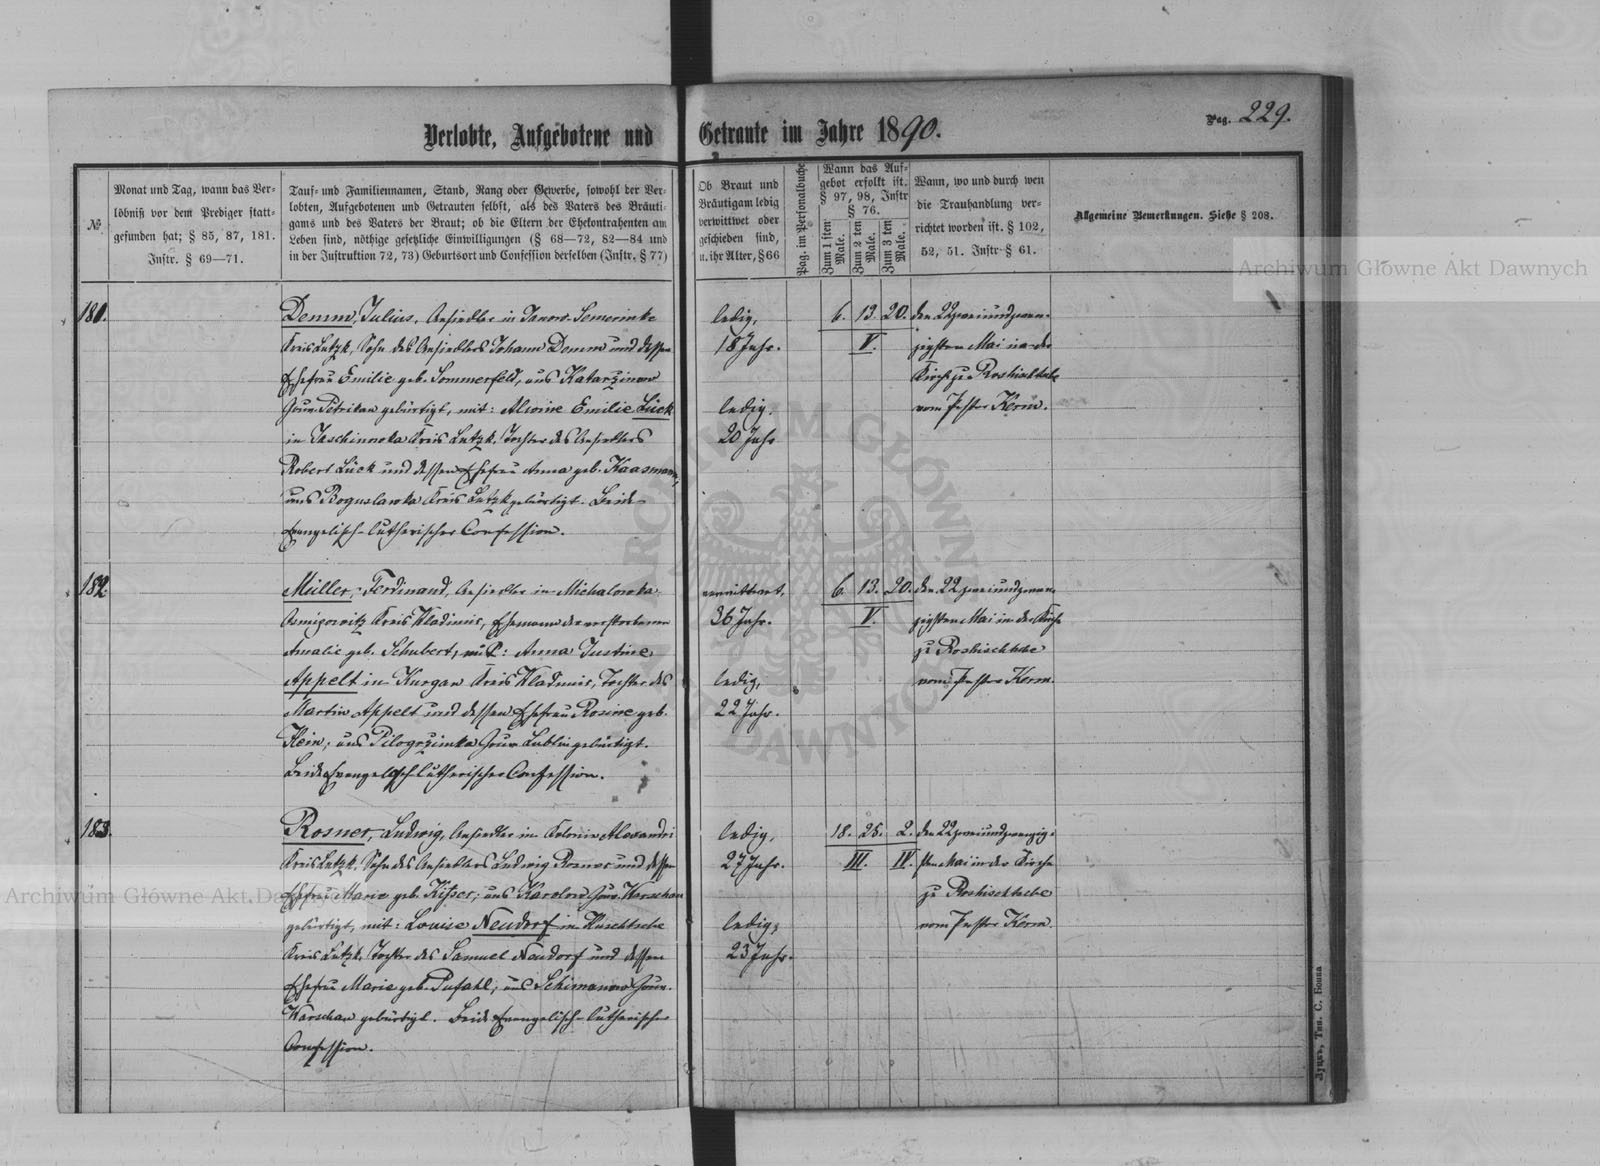 Verlobte, Aufgebotene und Getraute im Jahre 1890.
Pag. 229.
№
Monat und Tag, wann das Ver=
löbniß vor dem Prediger statt=
gefunden hat; § 85, 87, 181.
Instr. § 69—71.
Tauf= und Familiennamen, Stand, Rang oder Gewerbe, sowohl der Ver=
lobten, Aufgebotenen und Getrauten selbst, als des Vaters des Bräuti=
gams und des Vaters der Braut; ob die Eltern der Ehekontrahenten am
Leben sind, nöthige gesetzliche Einwilligungen (§ 68—72, 82—84 und
in der Instruktion 72, 73) Geburtsort und Confession derselben (Instr. § 77)
Ob Braut und
Bräutigam ledig
verwittwet oder
geschieden sind,
u. ihr Alter, § 66
Pag. im Personalbuche
Wann das Auf=
gebot erfolkt ist.
§ 97, 98, Instr
§ 76.
Zum 1 sten Male.
Zum 2 ten Male.
Zum 3 ten Male.
Wann, wo und durch wen
die Trauhandlung ver=
richtet worden ist. § 102,
52, 51. Instr § 61.
Allgemeine Bemerkungen. Siehe § 208.
181.
Demm, Julius, Ansiedler in Janow. Semerinke
Kreis Lutzk, Sohn des Ansiedlers Johann Demm und dessen
Ehefrau Emilie geb. Sommerfeld, aus Katarzinow
Gouv. Petrikau gebürtigt, mit: Alwine Emilie Lück
in Jaschinowka Kreis Lutzk, Tochter des Ansiedlers
Robert Lück und dessen Ehefrau Anna geb. Kaasmann,
aus Boguslawka Kreis Lutzk gebürtigt. Beide
Evangelisch-lutherischer Confession.
ledig,
18 Jahr.
ledig.
20 Jahr
6. 13. 20.
V.
den 22 zweiundzwan-
zigsten Mai in der
Kirche zu Roshischtsche
vom Pastor Kerm.
182.
Müller, Ferdinand, Ansiedler in Michalowka
Osmigowitz Kreis Wladimir, Ehemann der verstorbenen
Amalie geb. Schubert, mit: Anna Justine
Appelt in Kurgan Kreis Wladimir, Tochter des
Martin Appelt und dessen Ehefrau Rosine geb.
Klein, aus Pilogozimka Gouv Lublin gebürtigt.
Beide Evangelisch-lutherischer Confession.
verwittwet,
36 Jahr.
ledig,
22 Jahr.
6. 13. 20.
V.
den 22 zweiundzwan-
zigsten Mai in der Kirche
zu Roshischtsche
vom Pastor Kerm.
183.
Rosner, Ludwig, Ansiedler in Kolonie Alexandri
Kreis Lutzk, Sohn des Ansiedlers Ludwig Rosner und dessen
Ehefrau Marie geb. Kisser, aus Karolew Gouv. Warschau
gebürtigt, mit: Louise Neudorf in Kluschtsche
Kreis Lutzk, Tochter des Samuel Neudorf und dessen
Ehefrau Marie geb. Pufahl, aus Schimanow Gouv.
Warschau gebürtigt. Beide Evangelisch-lutherischer
Confession.
ledig,
27 Jahr.
ledig,
23 Jahr.
18. 25. 2.
III. IV.
den 22 zweiundzwanzig-
sten Mai in der Kirche
zu Roshischtsche
vom Pastor Kerm.
Луцкъ, Тип. С. Бонка
Archiwum Główne Akt Dawnych
Archiwum Główne Akt Dawnych
ARCHIWUM GŁÓWNE
DAWNYCH